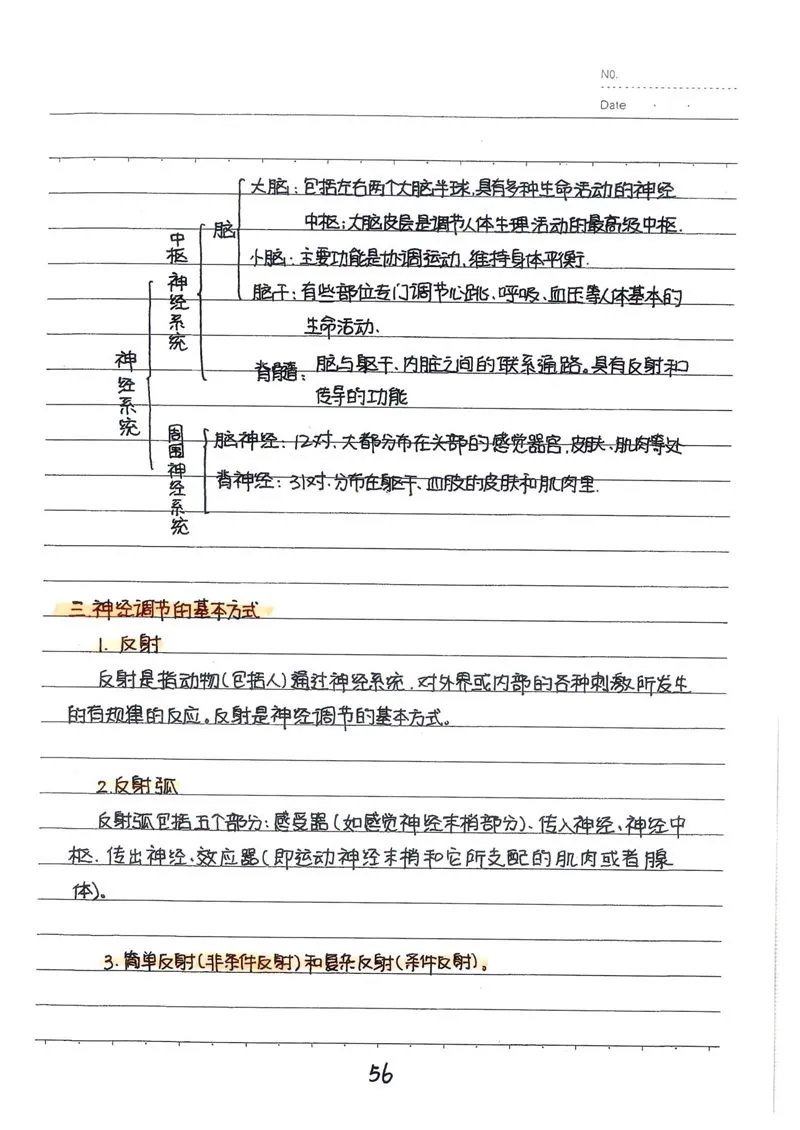 No.
Date
大脑：包括左右两个大脑半球，具有多种生命活动的神经
中枢；大脑皮层是调节人体生理活动的最高级中枢.
小脑：主要功能是协调运动，维持身体平衡.
脑干：有些部位专门调节心跳、呼吸、血压等人体基本的
生命活动、
脑
中枢神经系统
脊髓：脑与躯干、内脏之间的联系通路。具有反射和
传导的功能
神经系统
周围神经系统
脑神经：12对、大都分布在头部的感觉器官，皮肤、肌肉等处
脊神经：31对、分布在躯干、四肢的皮肤和肌肉里.
三.神经调节的基本方式
1. 反射
反射是指动物(包括人)通过神经系统，对外界或内部的各种刺激所发生
的有规律的反应。反射是神经调节的基本方式。
2.反射弧
反射弧包括五个部分：感受器(如感觉神经末梢部分)、传入神经、神经中
枢、传出神经、效应器(即运动神经末梢和它所支配的肌肉或者腺
体)。
3.简单反射(非条件反射)和复杂反射(条件反射)。
56